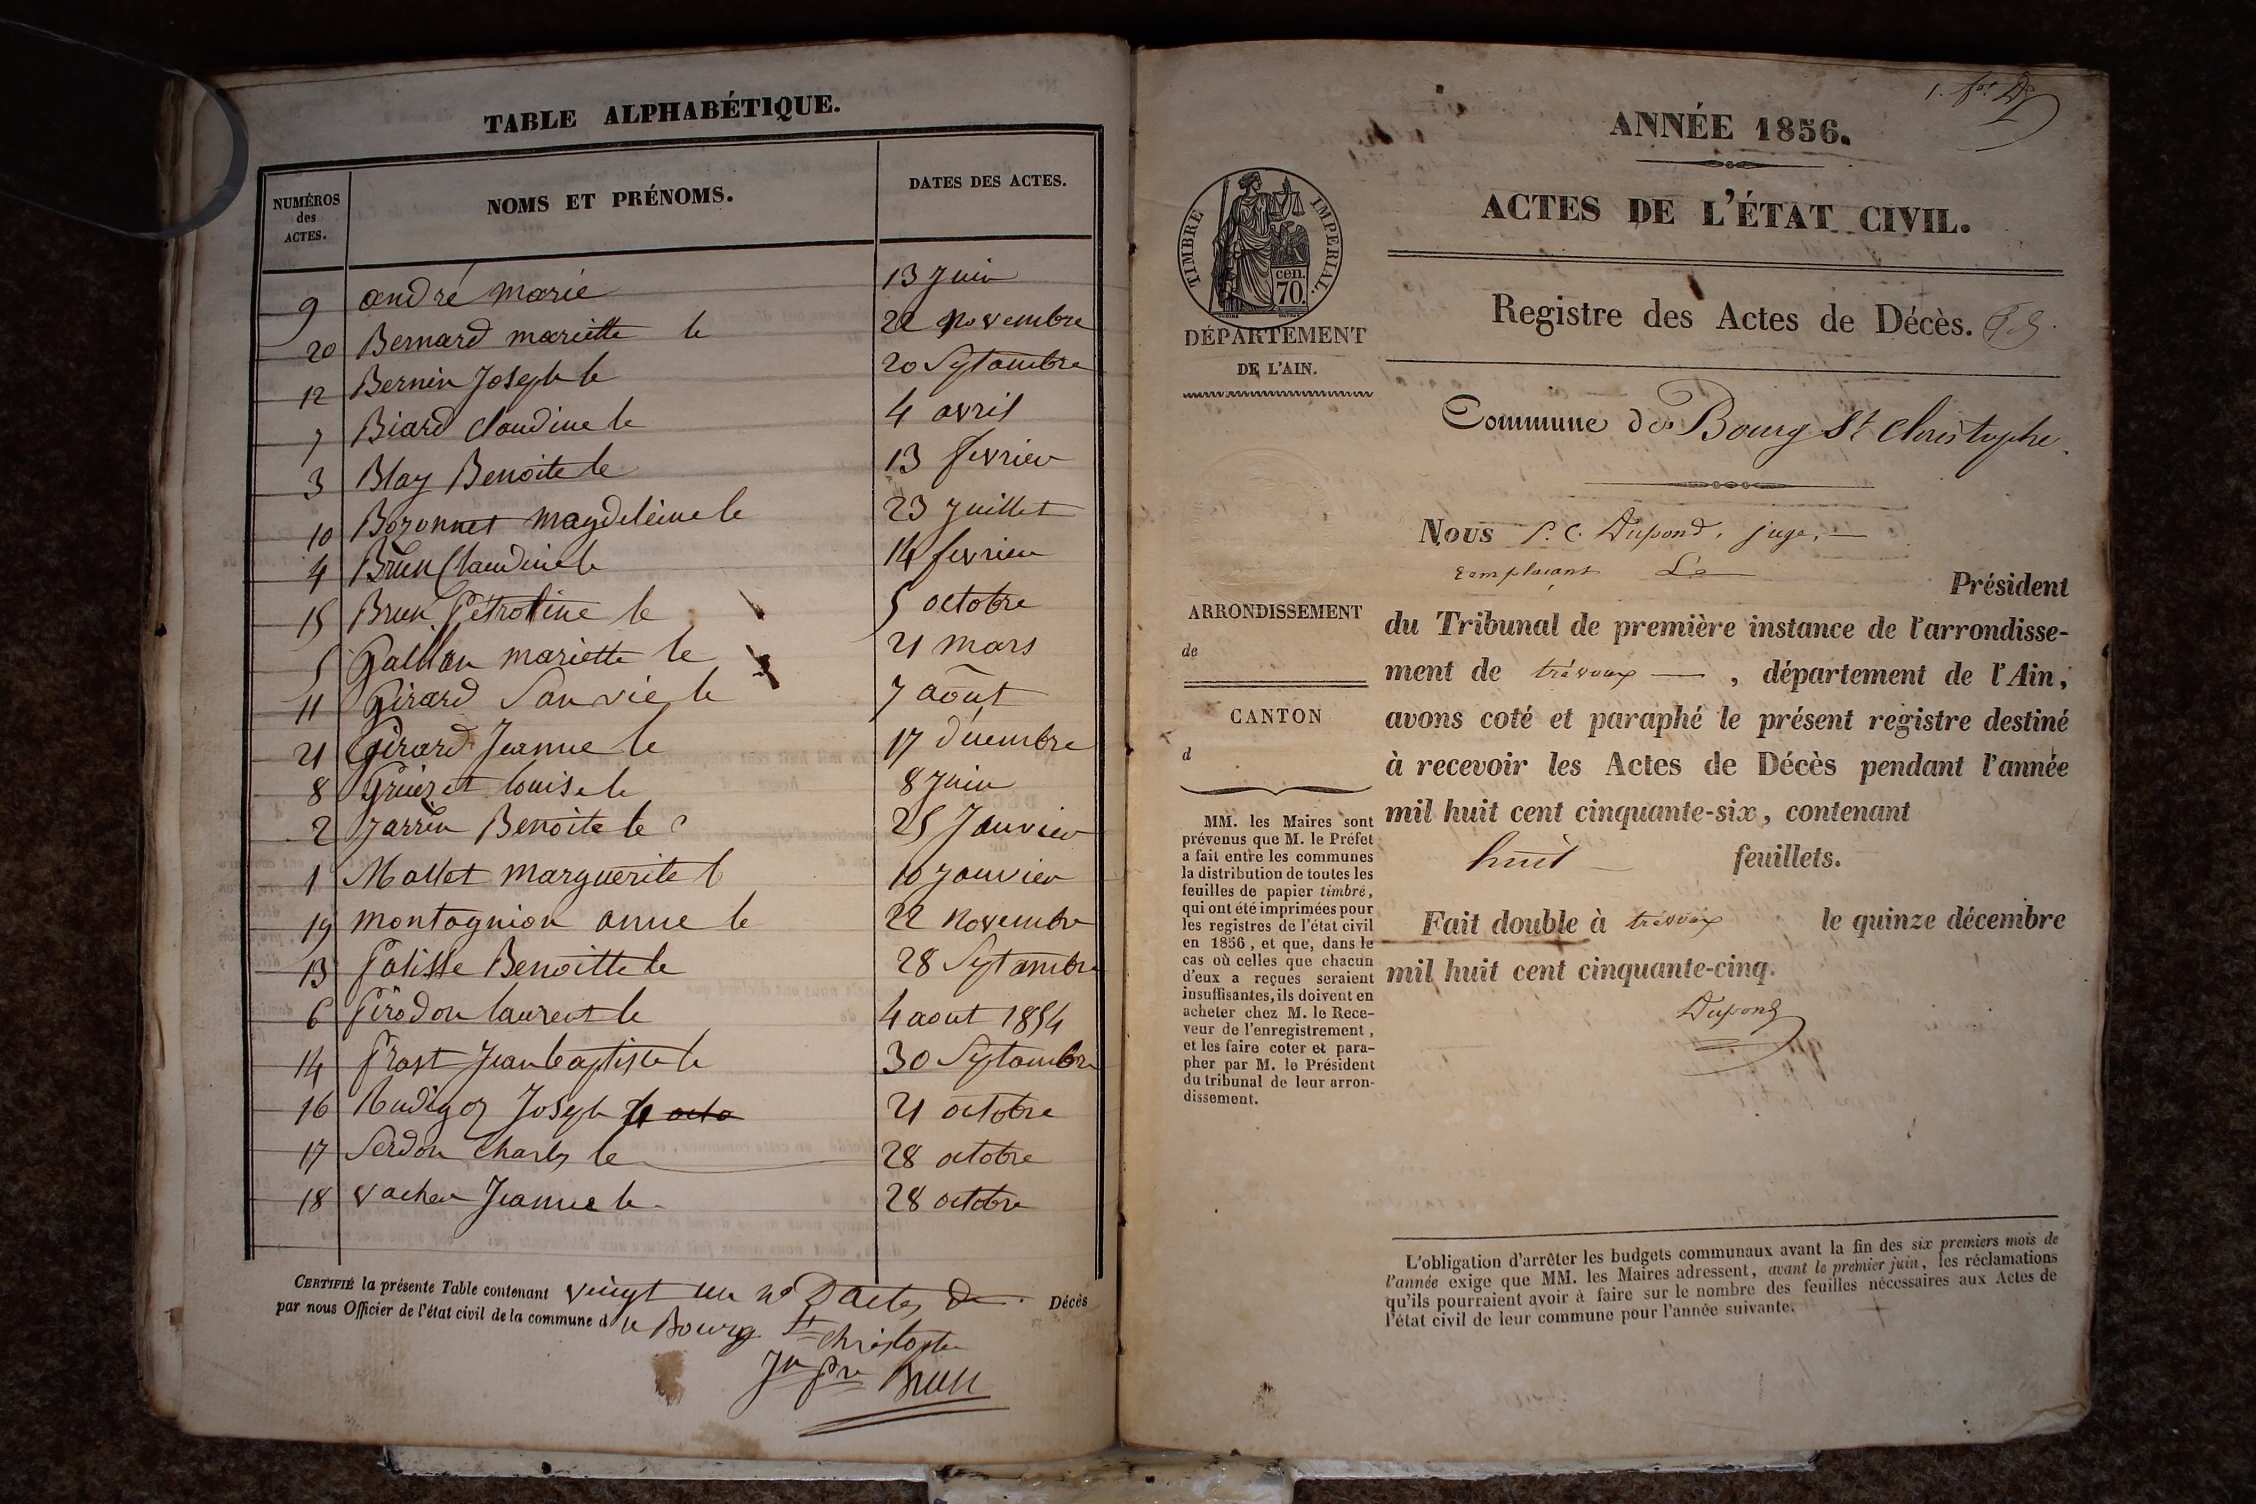 TABLE ALPHABÉTIQUE.
NUMÉROS
des
ACTES.
NOMS ET PRÉNOMS.
DATES DES ACTES.
9 andré marie 13 Juin
20 Bernard mariette le 22 Novembre
12 Bernin Joseph le 20 Septambre
7 Biard claudine le 4 avril
3 Blay Benoite le 13 fevrier
10 Bozonnet magdeleine le 23 Juillet
4 Brun Claudine le 14 fevrier
15 Brun Petroline le 5 octobre
5 Gallan mariette le 21 mars
11 Girard le 7 août
21 Girard Jeanne le 17 décembre
8 Gruizet louise le 8 Juin
2 Jarrin Benoite le 25 Janvier
1 Mallet marguerite l 10 Janvier
19 montagnion anne le 22 Novembre
13 Palisse Benoitte le 28 Septambre
6 Pirodon laurent le 4 aout 1854
14 Prost Jeanbaptiste le 30 Septambre
16 Rudigoz Joseph le octo 21 octobre
17 Serdon Charles le 28 octobre
18 vacher Jeanne le 28 octobre
CERTIFIÉ la présente Table contenant veingt un no D'actes de Décès
par nous Officier de l'état civil de la commune d u Bourg St christophe
Jn Pre Brun
1. fet
ANNÉE 1856.
ACTES DE L'ÉTAT CIVIL.
TIMBRE IMPÉRIAL.
cen.
70.
Registre des Actes de Décès.
DÉPARTEMENT
DE L'AIN.
Commune de Bourg St Christophe.
Nous P. C. Dupond, juge,
remplaçant Le Président
ARRONDISSEMENT
de
du Tribunal de première instance de l'arrondisse-
ment de trévoux , département de l'Ain,
CANTON
d
avons coté et paraphé le présent registre destiné
à recevoir les Actes de Décès pendant l'année
mil huit cent cinquante-six, contenant
huit feuillets.
Fait double à trévoux le quinze décembre
mil huit cent cinquante-cinq.
Dupond
MM. les Maires sont
prévenus que M. le Préfet
a fait entre les communes
la distribution de toutes les
feuilles de papier timbré,
qui ont été imprimées pour
les registres de l'état civil
en 1856, et que, dans le
cas où celles que chacun
d'eux a reçues seraient
insuffisantes, ils doivent en
acheter chez M. le Rece-
veur de l'enregistrement,
et les faire coter et para-
pher par M. le Président
du tribunal de leur arron-
dissement.
L'obligation d'arrêter les budgets communaux avant la fin des six premiers mois de
l'année exige que MM. les Maires adressent, avant le premier juin, les réclamations
qu'ils pourraient avoir à faire sur le nombre des feuilles nécessaires aux Actes de
l'état civil de leur commune pour l'année suivante.